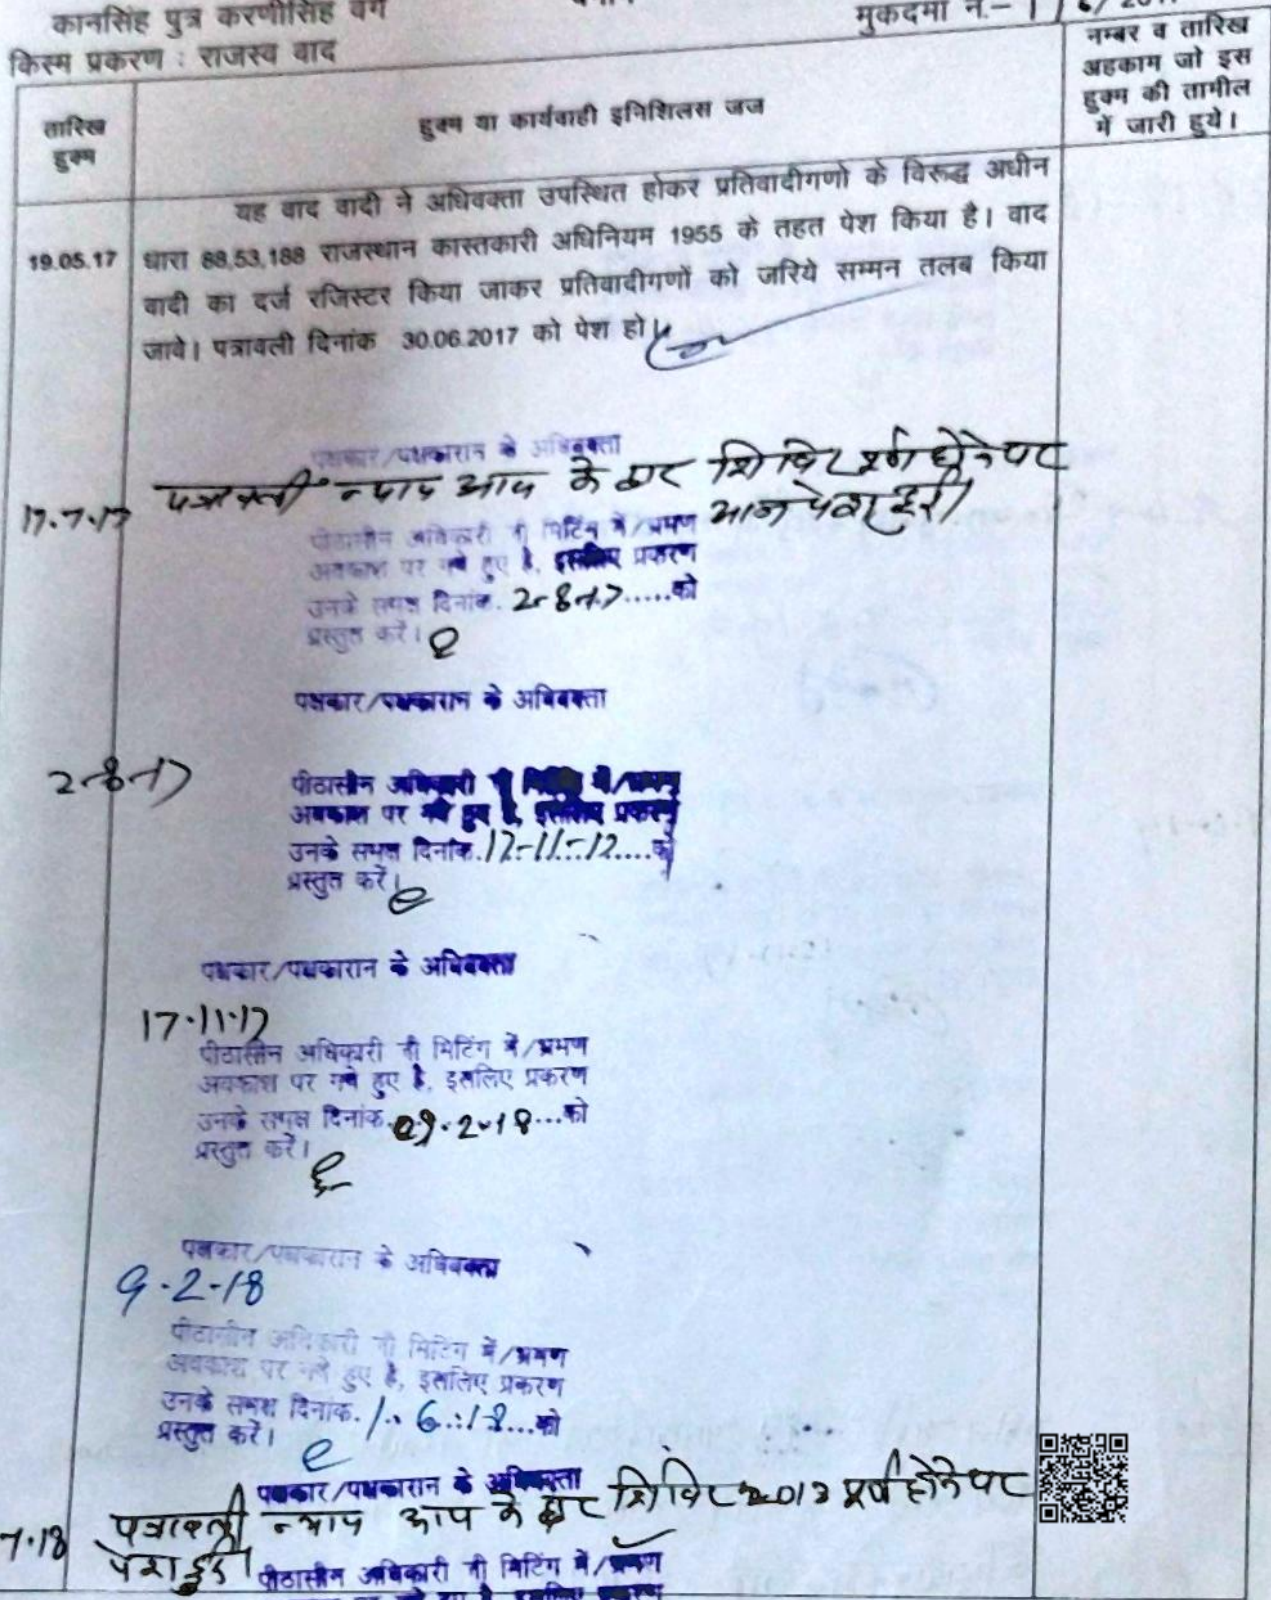 कानसिंह पुत्र करणीसिंह वगै
मुकदमा नं.-
किस्म प्रकरण : राजस्व वाद
तारिख
हुक्म
हुक्म या कार्यवाही इनिशिलस जज
नम्बर व तारिख
अहकाम जो इस
हुक्म की तामील
में जारी हुये।
यह वाद वादी ने अधिवक्ता उपस्थित होकर प्रतिवादीगणो के विरूद्ध अधीन
19.05.17 धारा 88,53,188 राजस्थान कास्तकारी अधिनियम 1955 के तहत पेश किया है। वाद
वादी का दर्ज रजिस्टर किया जाकर प्रतिवादीगणों को जरिये सम्मन तलब किया
जावे। पत्रावली दिनांक 30.06.2017 को पेश हो।
पक्षकार/पक्षकारान के अधिवक्ता
17.7.17 पत्रावली न्याय आप के द्वार शिविर पूर्ण होने पर
आज पेश हुई।
पीठासीन अधिकारी जी मिटिंग में/भ्रमण
अवकाश पर गये हुए है, इसलिए प्रकरण
उनके समक्ष दिनांक. 2-8-17.....को
प्रस्तुत करें।
पक्षकार/पक्षकारान के अधिवक्ता
2-8-17
पीठासीन अधिकारी जी मिटिंग में/भ्रमण
अवकाश पर गये हुए है, इसलिए प्रकरण
उनके समक्ष दिनांक.17-11-17....को
प्रस्तुत करें।
पक्षकार/पक्षकारान के अधिवक्ता
17.11.17
पीठासीन अधिकारी जी मिटिंग में/भ्रमण
अवकाश पर गये हुए है, इसलिए प्रकरण
उनके समक्ष दिनांक.09.2.18...को
प्रस्तुत करें।
पक्षकार/पक्षकारान के अधिवक्ता
9-2-18
पीठासीन अधिकारी जी मिटिंग में/भ्रमण
अवकाश पर गये हुए है, इसलिए प्रकरण
उनके समक्ष दिनांक. 1.6.18...को
प्रस्तुत करें।
पक्षकार/पक्षकारान के अधिवक्ता
7.18 पत्रावली न्याय आप के द्वार शिविर पूर्ण होने पर
पेश हुई।
पीठासीन अधिकारी जी मिटिंग में/भ्रमण